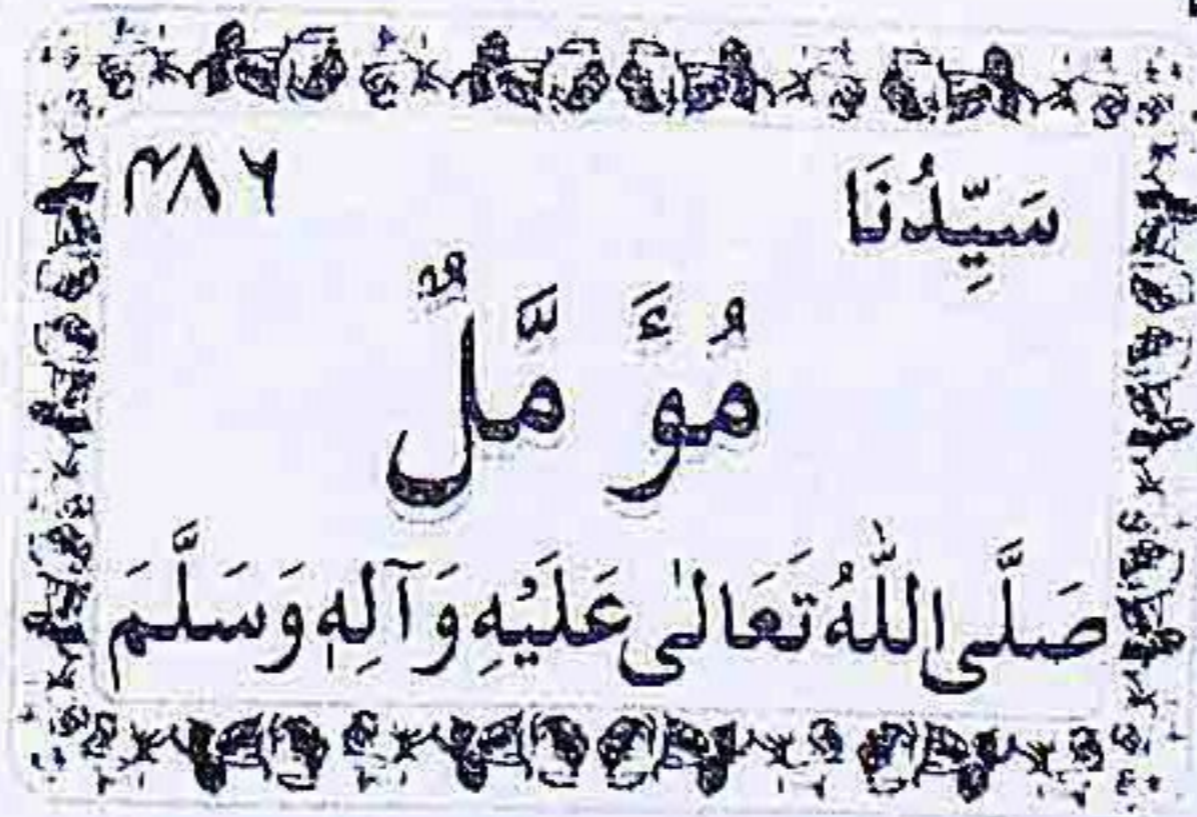 سَيِّدُنَا ۳۸۶
مُؤَ مَّلٌ
صَلَّى اللّٰهُ تَعَالٰى عَلَيْهِ وَآلِهٖ وَسَلَّمَ